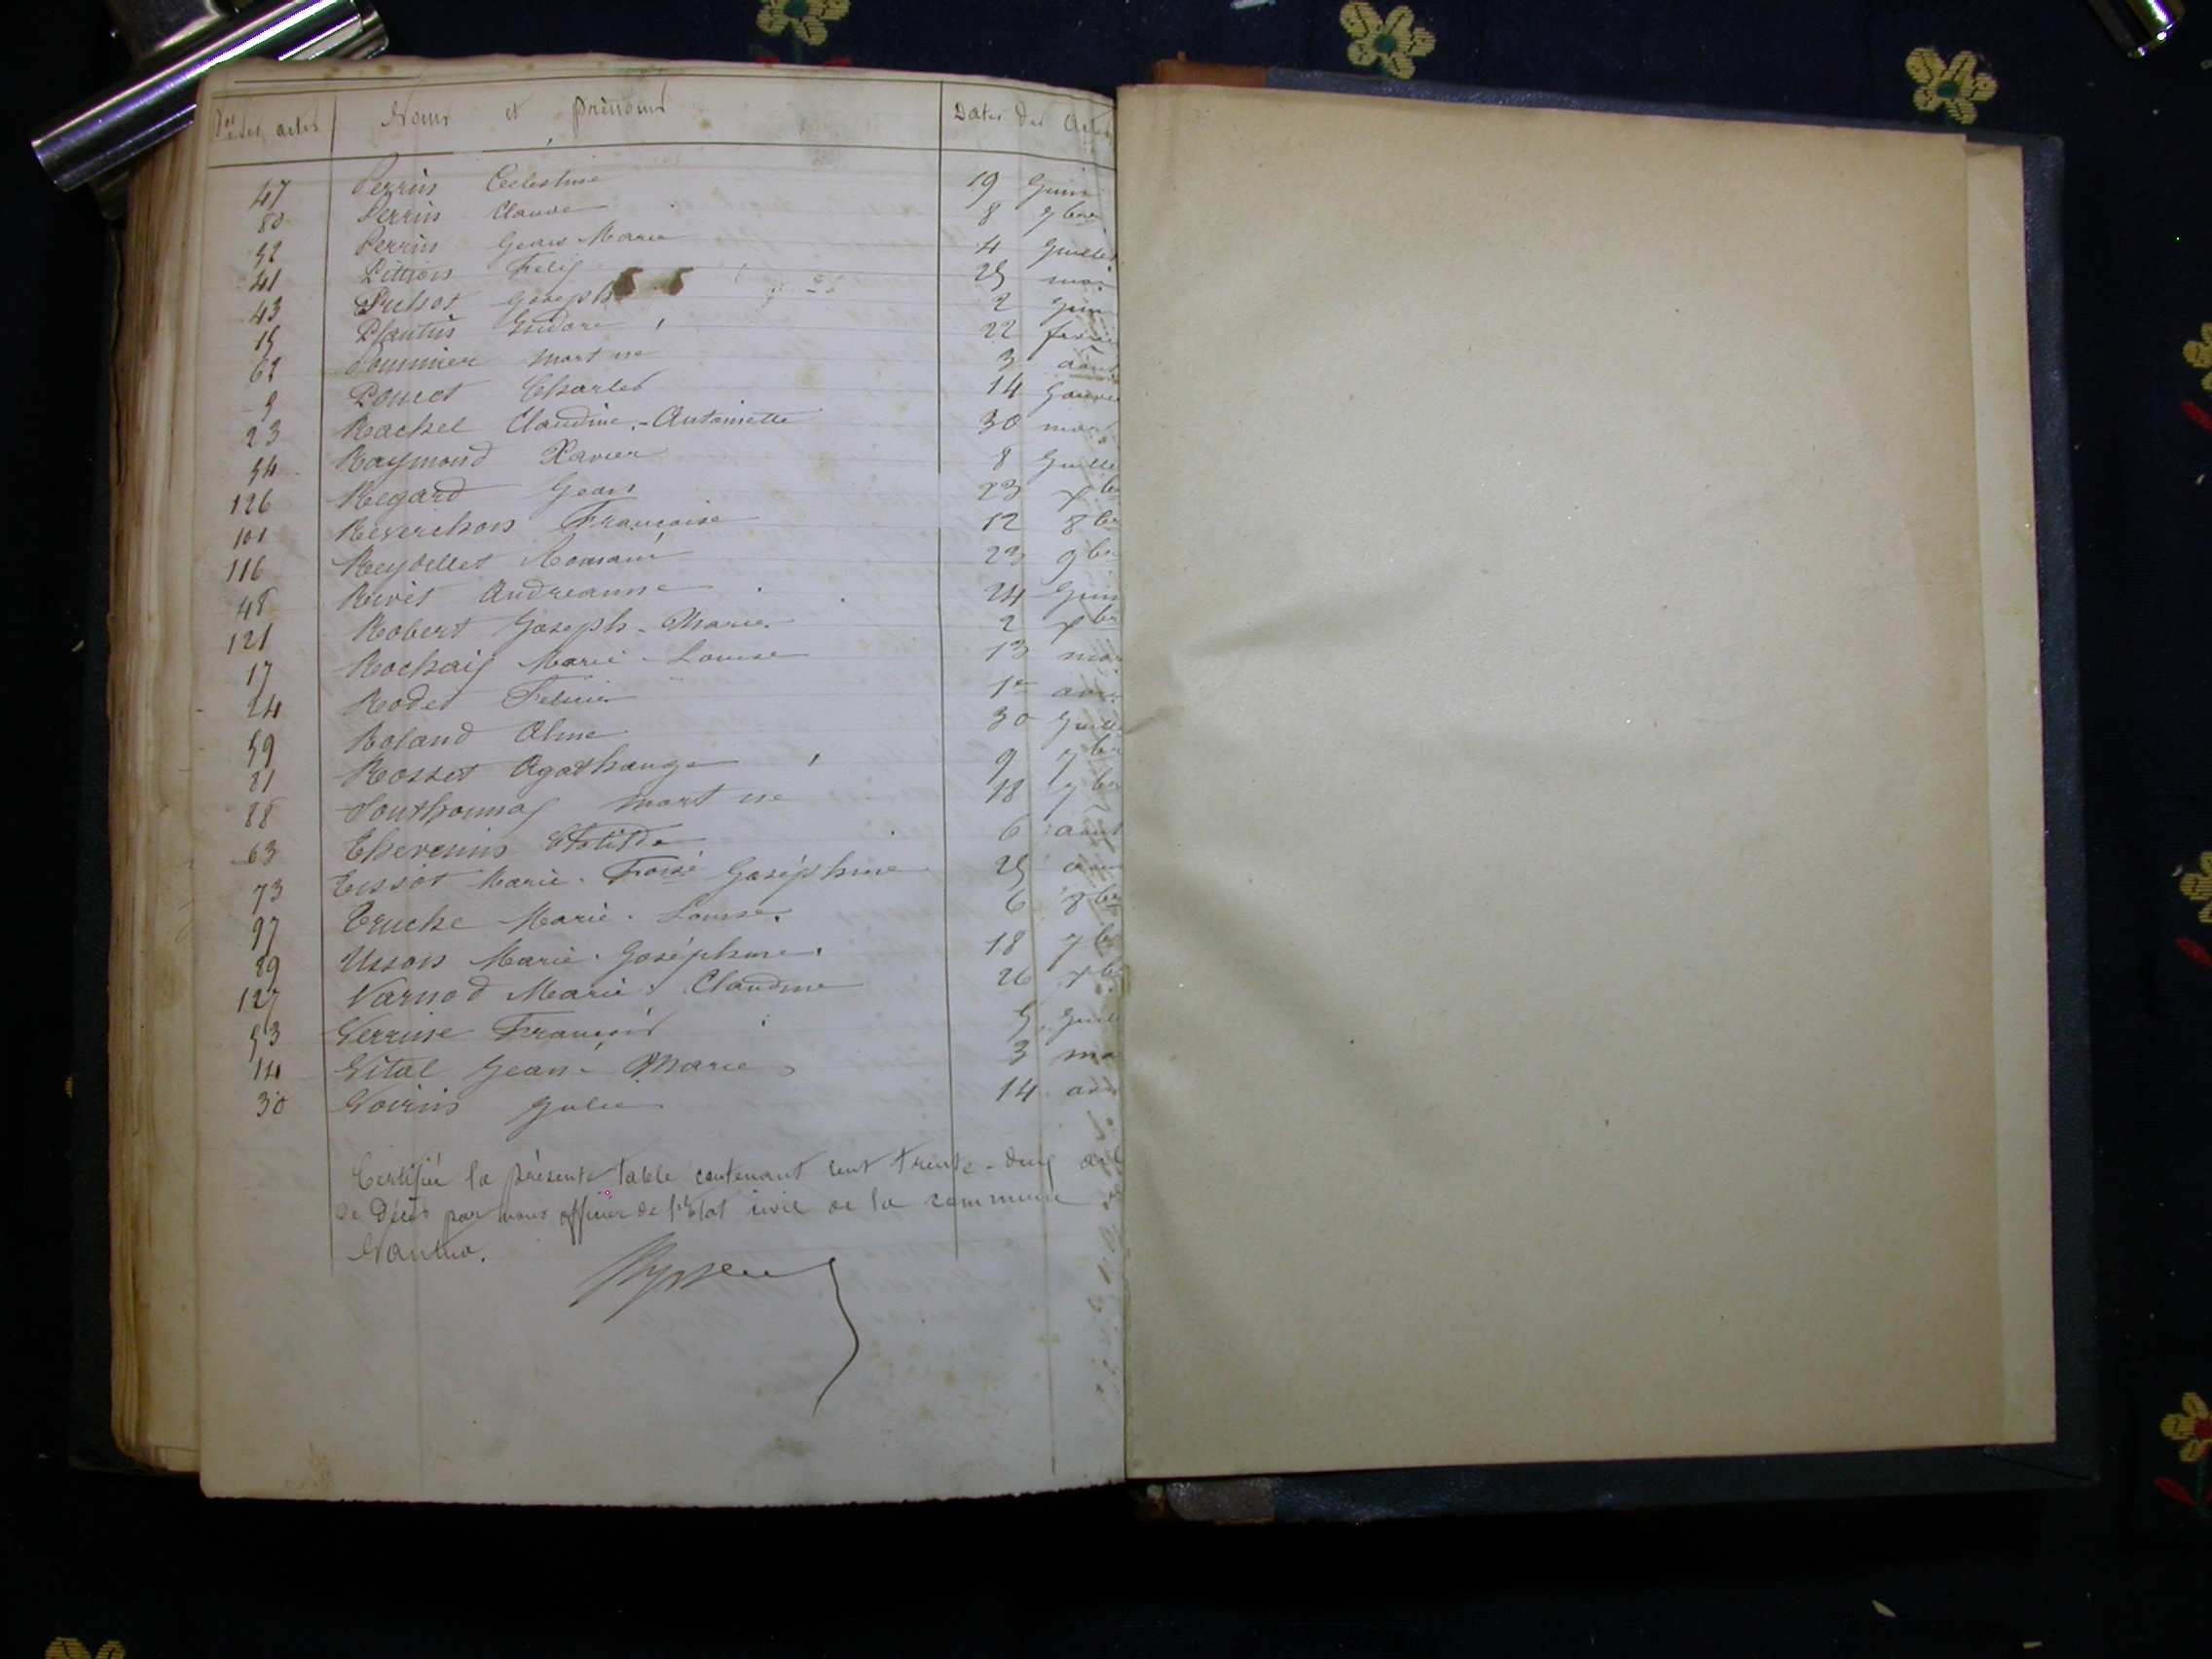 Nos des actes Noms et prénoms Dates des Actes
47 Perrin Célestine 19 Juin
80 Perrin Claude 8 7bre
52 Perrin Jean Marie 4 Juillet
41 Félix 25 mai
43 Joseph 2 Juin
15 Plantin 22 février
62 Pommier mort né 3 août
9 Poncet Charles 14 Janvier
23 Rachel Claudine-Antoinette 30 mars
54 Raymond Xavier 8 Juille
126 Regard Jean 23 xbr
101 Reverchon Françoise 12 8br
116 Reydellet Romain 23 9br
48 Rivet Andréanne 24 Juin
121 Robert Joseph-Marie 2 xbr
17 Rochaix Marie-Louise 13 mar
24 Rodet 1er avri
59 Roland Aline 30 Juille
81 Rosset Agathange 9 7br
88 Southonnax mort né 18 7br
63 Thevenin Clotilde 6 août
73 Tissot Marie Joséphine 25 aou
97 Truche Marie-Louise 6 8br
89 Usson Marie-Joséphine 18 7b
127 Varnod Marie Claudine 26 xbr
53 François 5 Juil
14 Vital Jean-Marie 3 ma
30 Voirin Julie 14 avri
Certifiée la présente table contenant cent trente-deux act
de Décès par nous officier de l'Etat civil de la commune
Nantua.